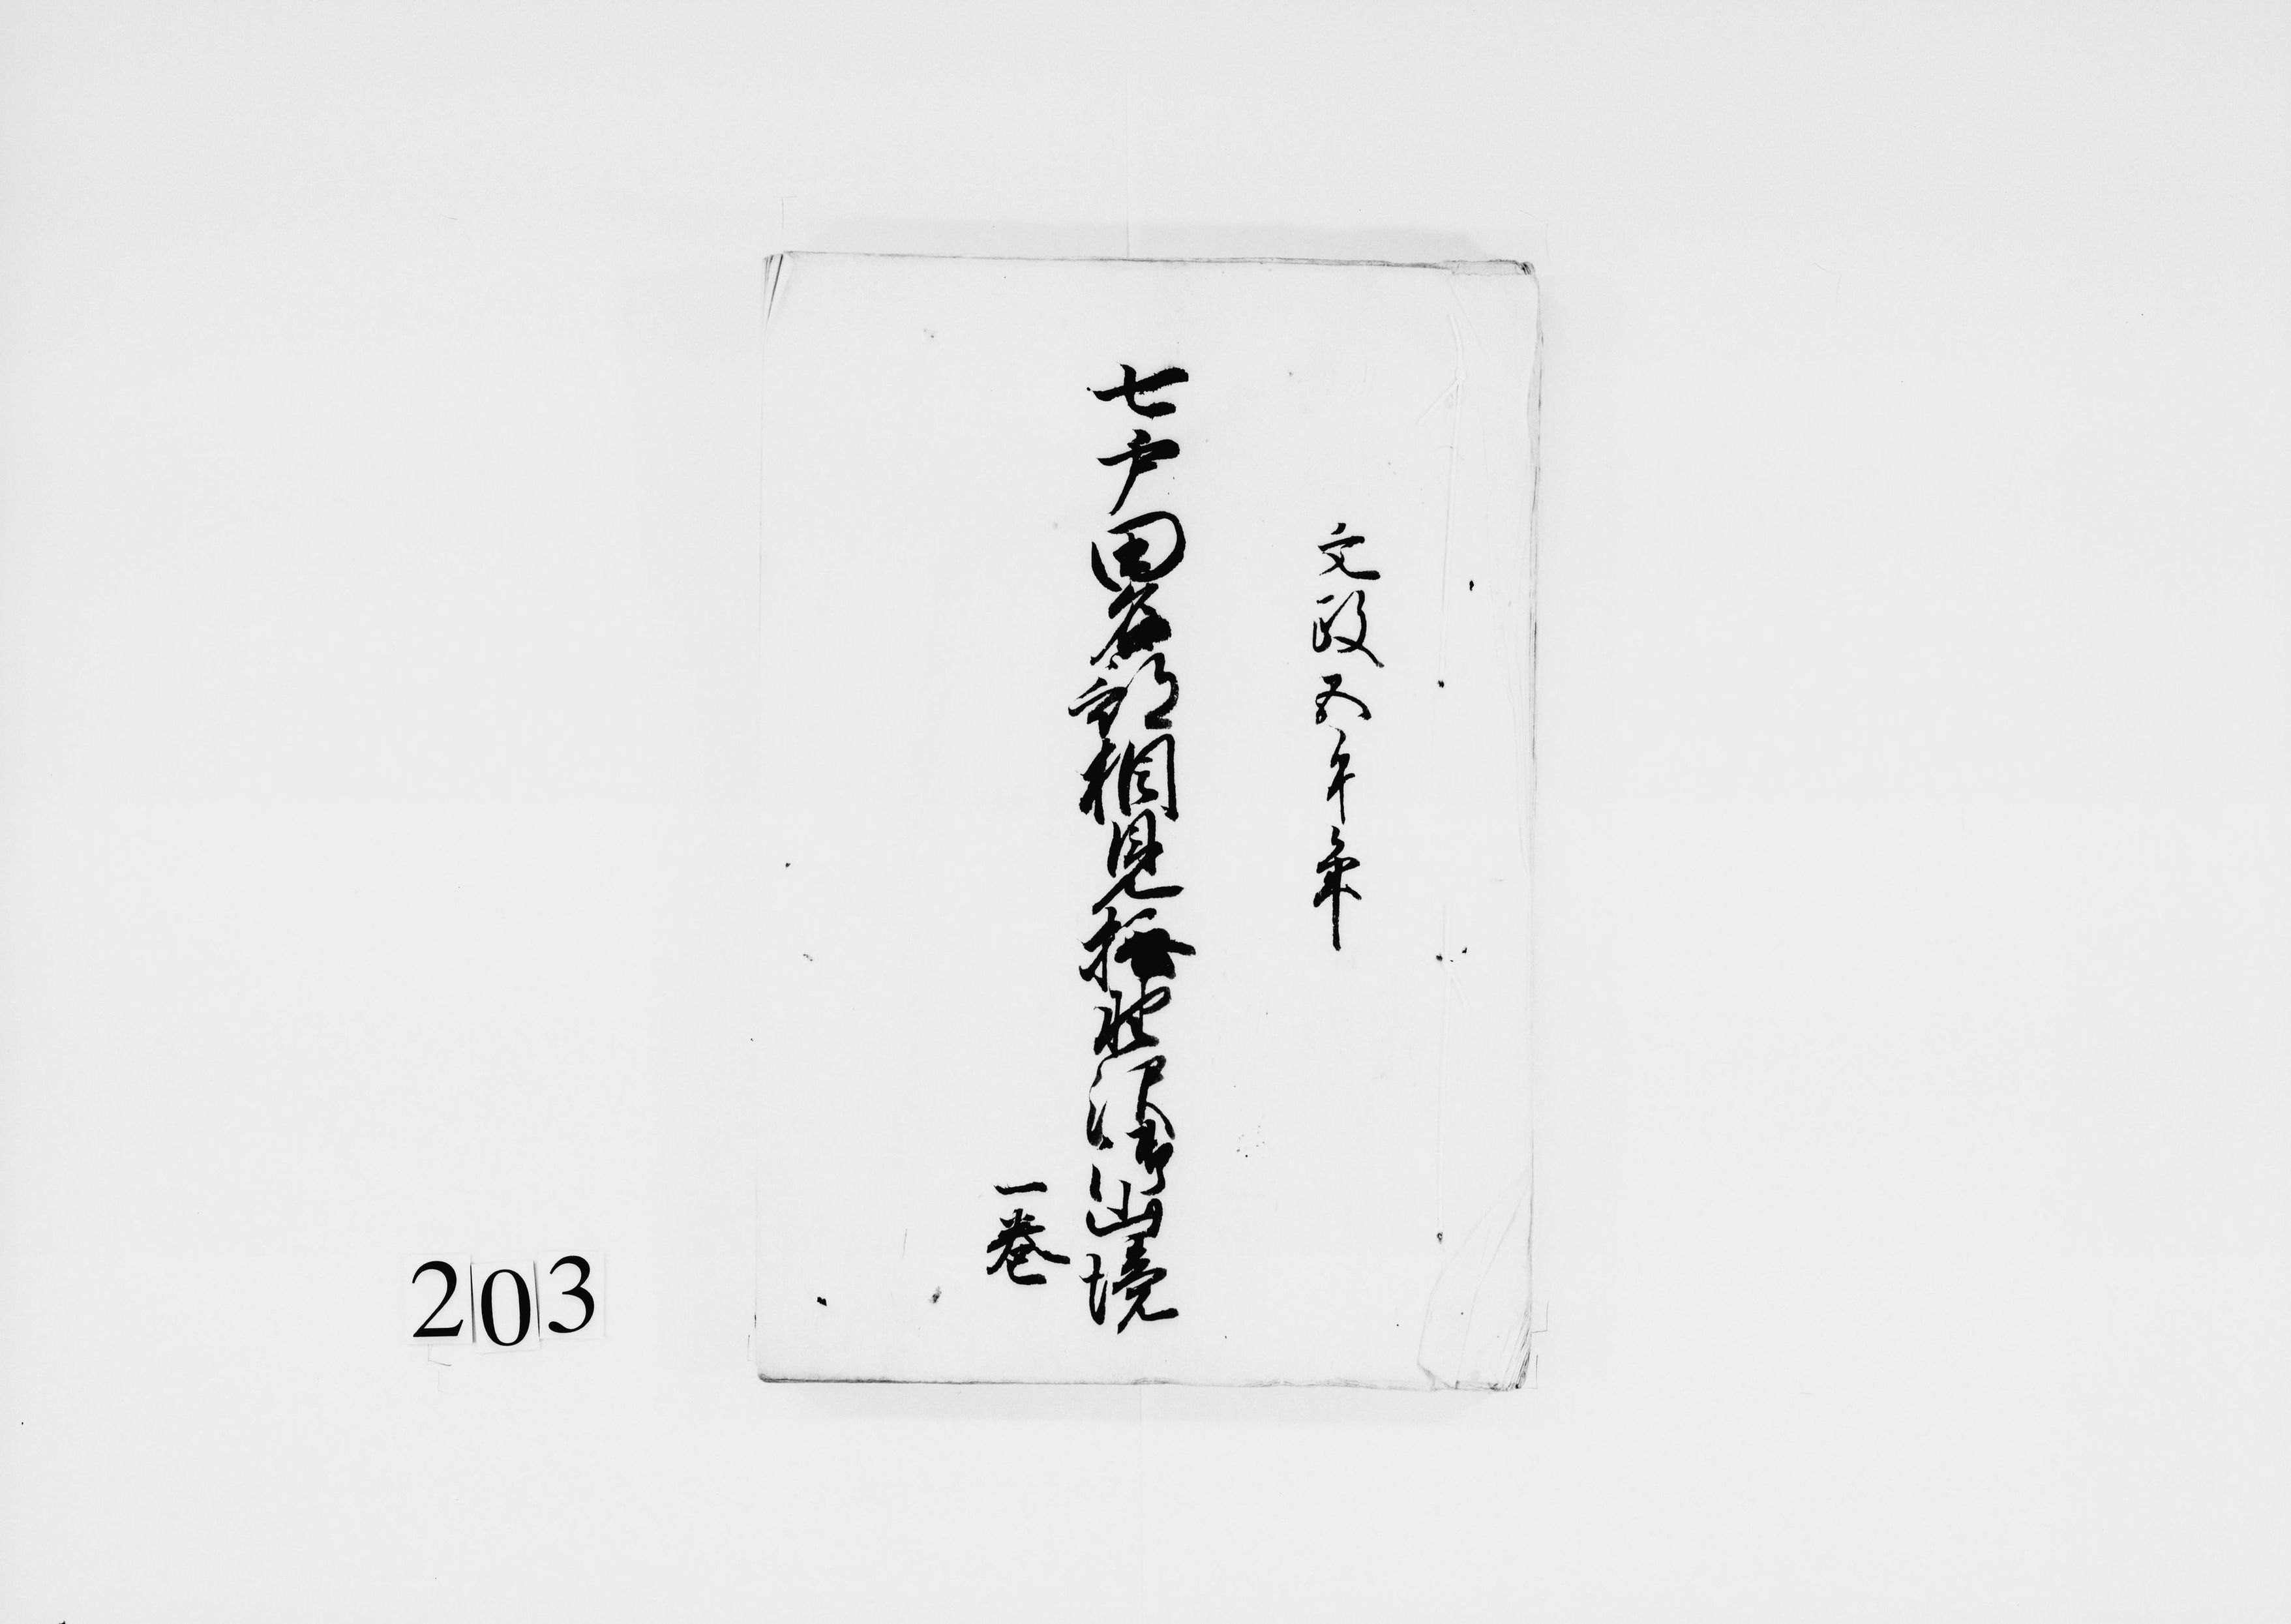 文政五午年
七戸田名部相見極野澤御山境
一巻
203